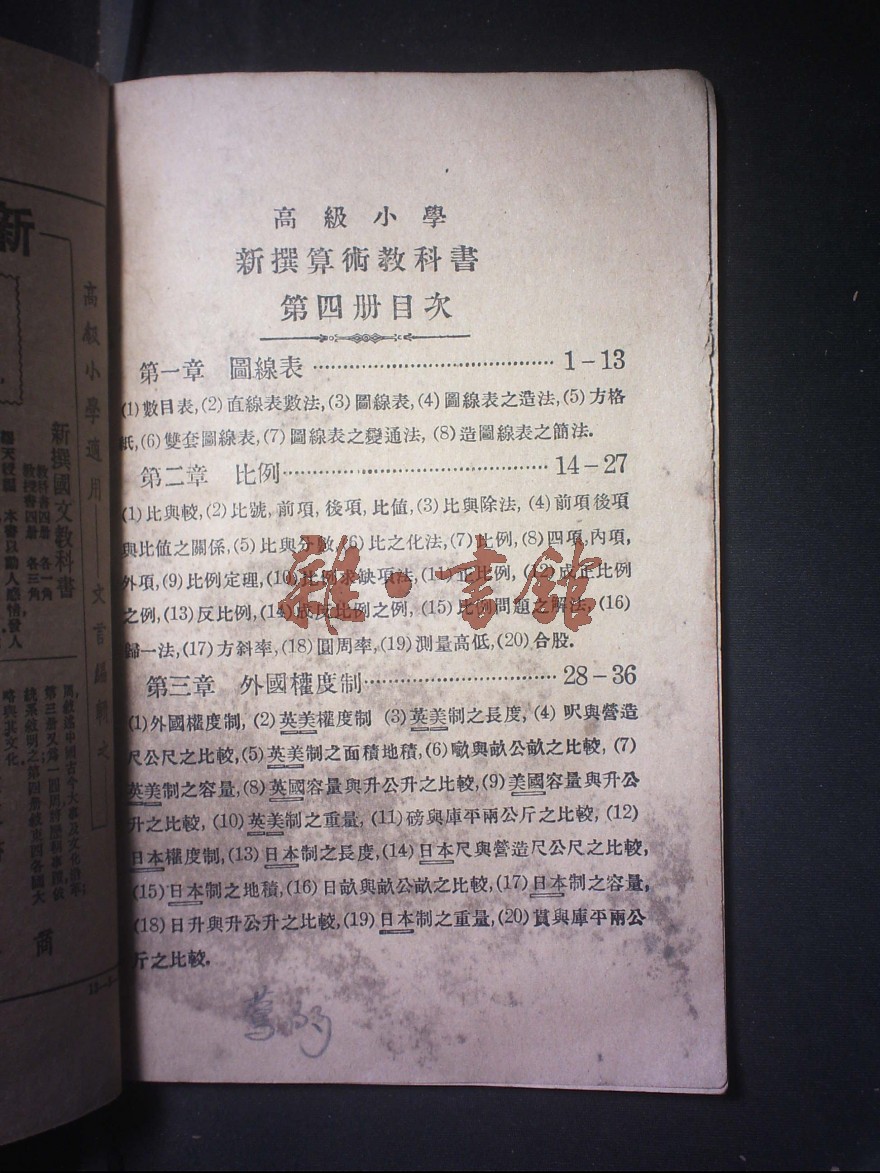 高級小學
新撰算術教科書
第四册目次
第一章 圖線表 1-13
(1)數目表,(2)直線表數法,(3)圖線表,(4)圖線表之造法,(5)方格
紙,(6)雙套圖線表,(7)圖線表之變通法,(8)造圖線表之簡法.
第二章 比例 14-27
(1)比與較,(2)比號,前項,後項,比值,(3)比與除法,(4)前項後項
與比值之關係,(5)比與分數,(6)比之化法,(7)比例,(8)四項,內項,
外項,(9)比例定理,(10)比例求缺項法,(11)正比例,(12)成正比例
之例,(13)反比例,(14)成反比例之例,(15)比例問題之解法,(16)
歸一法,(17)方斜率,(18)圓周率,(19)測量高低,(20)合股.
第三章 外國權度制 28-36
(1)外國權度制,(2)英美權度制 (3)英美制之長度,(4)呎與營造
尺公尺之比較,(5)英美制之面積地積,(6)噉與畝公畝之比較,(7)
英美制之容量,(8)英國容量與升公升之比較,(9)美國容量與升公
升之比較,(10)英美制之重量,(11)磅與庫平兩公斤之比較,(12)
日本權度制,(13)日本制之長度,(14)日本尺與營造尺公尺之比較,
(15)日本制之地積,(16)日畝與畝公畝之比較,(17)日本制之容量,
(18)日升與升公升之比較,(19)日本制之重量,(20)貫與庫平兩公
斤之比較.
雜·書館
新
高級小學適用 文言編輯之
新撰國文教科書
教科書四册 各一角
教授書四册 各三角
商